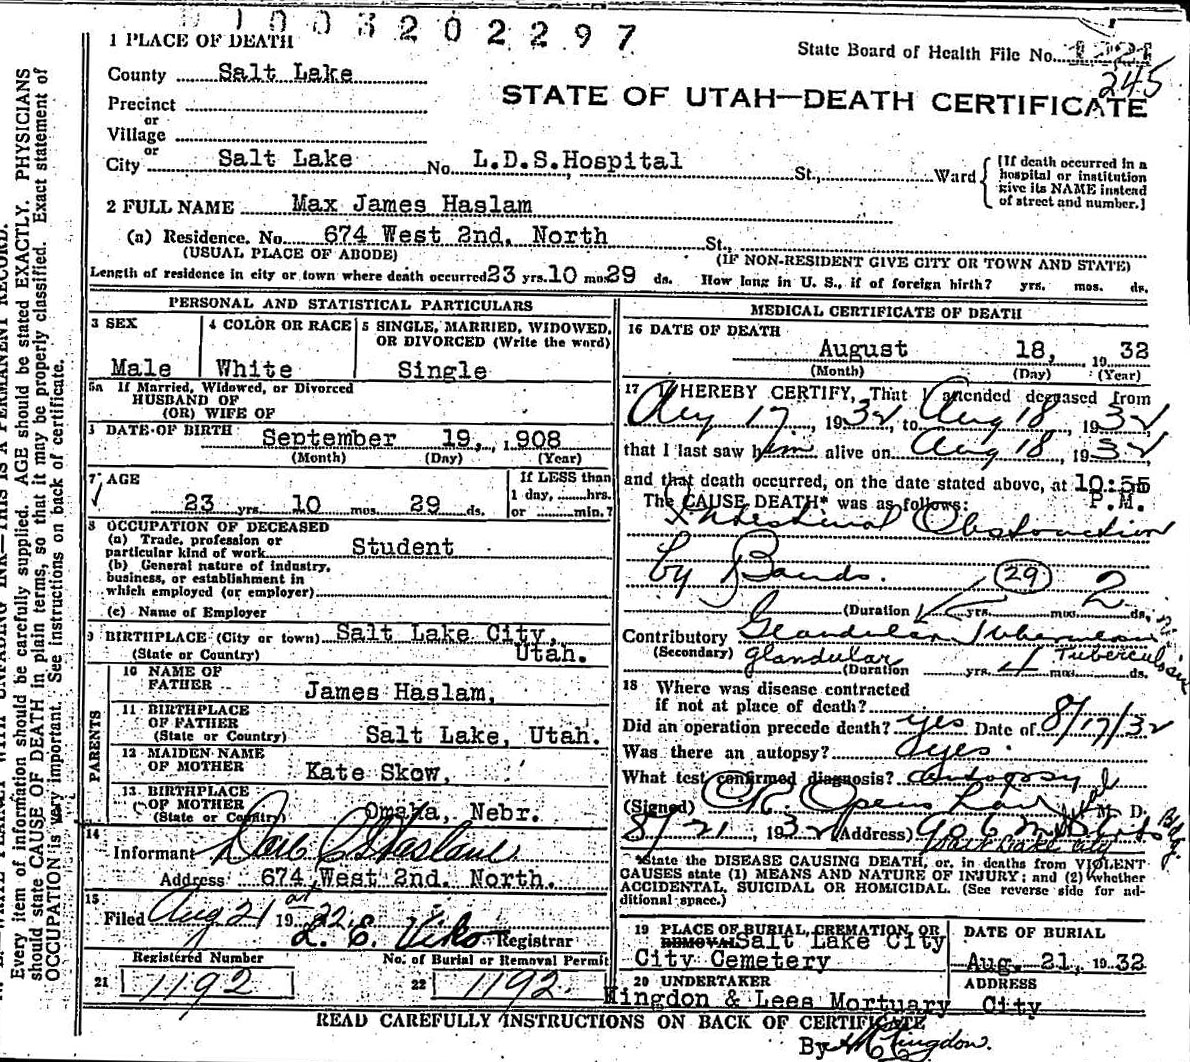 003202297
1 PLACE OF DEATH
State Board of Health File No.
245
County Salt Lake
STATE OF UTAH—DEATH CERTIFICATE
Precinct
or
Village
or
City Salt Lake No. L.D.S. Hospital St., Ward
[If death occurred in a
hospital or institution
give its NAME instead
of street and number.]
2 FULL NAME Max James Haslam
(a) Residence. No. 674 West 2nd. North St.,
(USUAL PLACE OF ABODE) (IF NON-RESIDENT GIVE CITY OR TOWN AND STATE)
Length of residence in city or town where death occurred 23 yrs. 10 mos. 29 ds. How long in U. S., if of foreign birth? yrs. mos. ds.
PERSONAL AND STATISTICAL PARTICULARS
3 SEX 4 COLOR OR RACE 5 SINGLE, MARRIED, WIDOWED,
OR DIVORCED (Write the word)
Male White Single
5a If Married, Widowed, or Divorced
HUSBAND OF
(OR) WIFE OF
DATE OF BIRTH September 19, 1908
(Month) (Day) (Year)
7 AGE If LESS than
1 day, hrs.
23 yrs. 10 mos. 29 ds. or min.?
8 OCCUPATION OF DECEASED
(a) Trade, profession or
particular kind of work Student
(b) General nature of industry,
business, or establishment in
which employed (or employer)
(c) Name of Employer
9 BIRTHPLACE (City or town) Salt Lake City,
(State or Country) Utah.
PARENTS
10 NAME OF
FATHER James Haslam,
11 BIRTHPLACE
OF FATHER
(State or Country) Salt Lake, Utah.
12 MAIDEN NAME
OF MOTHER Kate Skow,
13 BIRTHPLACE
OF MOTHER
(State or Country) Omaha, Nebr.
14
Informant Haslam
Address 674 West 2nd. North.
15
Filed Aug 21 1932
L. E. Viko Registrar
Registered Number No. of Burial or Removal Permit
21 1192 22 1192
MEDICAL CERTIFICATE OF DEATH
16 DATE OF DEATH
August 18, 1932
(Month) (Day) (Year)
17 I HEREBY CERTIFY, That I attended deceased from
Aug 17, 1932, to Aug 18, 1932
that I last saw him alive on Aug 18, 1932,
and that death occurred, on the date stated above, at 10:55
P.M.
The CAUSE DEATH* was as follows:
Intestinal Obstruction
by Bands. (29)
(Duration yrs. mos. 2 ds.
Contributory Glandular Tuberculosis
(Secondary) glandular Tuberculosis
(Duration yrs. 4 mos. ds.
18 Where was disease contracted
if not at place of death?
Did an operation precede death? yes Date of 8/17/32
Was there an autopsy? yes.
What test confirmed diagnosis? autopsy
(Signed) M. D.
8/21, 1932 (Address) Bldg.
Salt Lake City
*State the DISEASE CAUSING DEATH, or, in deaths from VIOLENT
CAUSES state (1) MEANS AND NATURE OF INJURY; and (2) whether
ACCIDENTAL, SUICIDAL OR HOMICIDAL. (See reverse side for ad-
ditional space.)
19 PLACE OF BURIAL, CREMATION, OR
REMOVAL Salt Lake City
City Cemetery
DATE OF BURIAL
Aug. 21, 1932
20 UNDERTAKER ADDRESS
Wingdon & Lees Mortuary City
READ CAREFULLY INSTRUCTIONS ON BACK OF CERTIFICATE
By
Every item of information should be carefully supplied. AGE should be stated EXACTLY. PHYSICIANS
should state CAUSE OF DEATH in plain terms, so that it may be properly classified. Exact statement of
OCCUPATION is very important. See instructions on back of certificate.